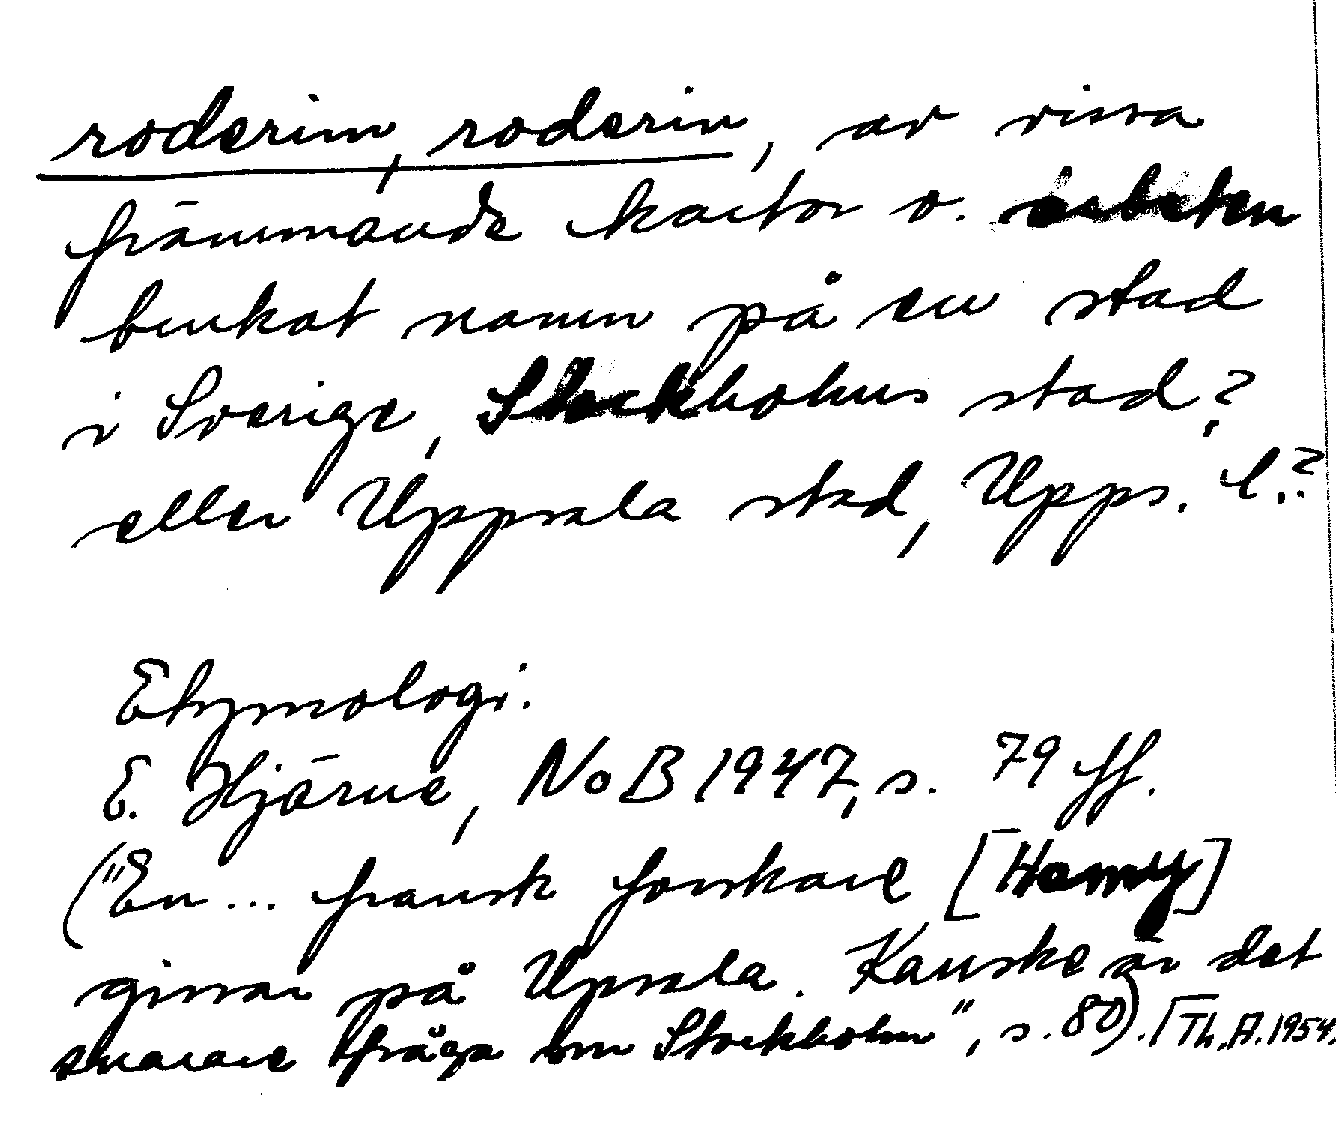 roderim, roderin, av vissa
främmande kartor o. arbeten
brukat namn på en stad
i Sverige, Stockholms stad?
eller Uppsala stad, Upps. l.?
Etymologi.
E. Hjärne, NoB 1947, s. 79 ff.
("En... fransk forskare [Hamy]
gissar på Upsala. Kanske är det
snarare fråga om Stockholm", s. 80). [Th. A. 1954.